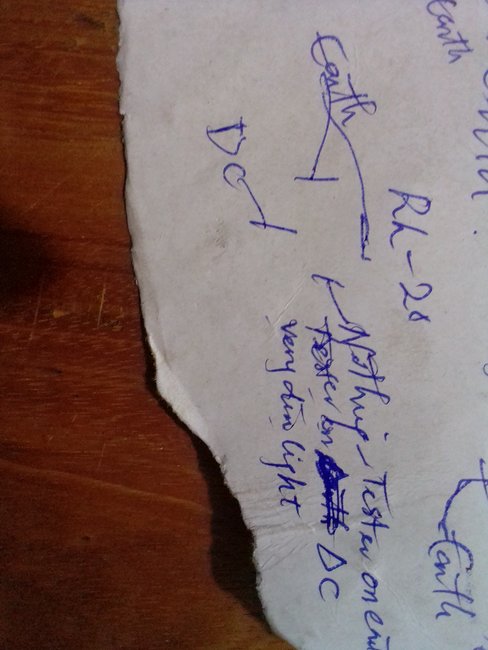 earth
Earth
Rh-28
DC
Nothing - Tester on
Tester on DC
very dim light
Earth